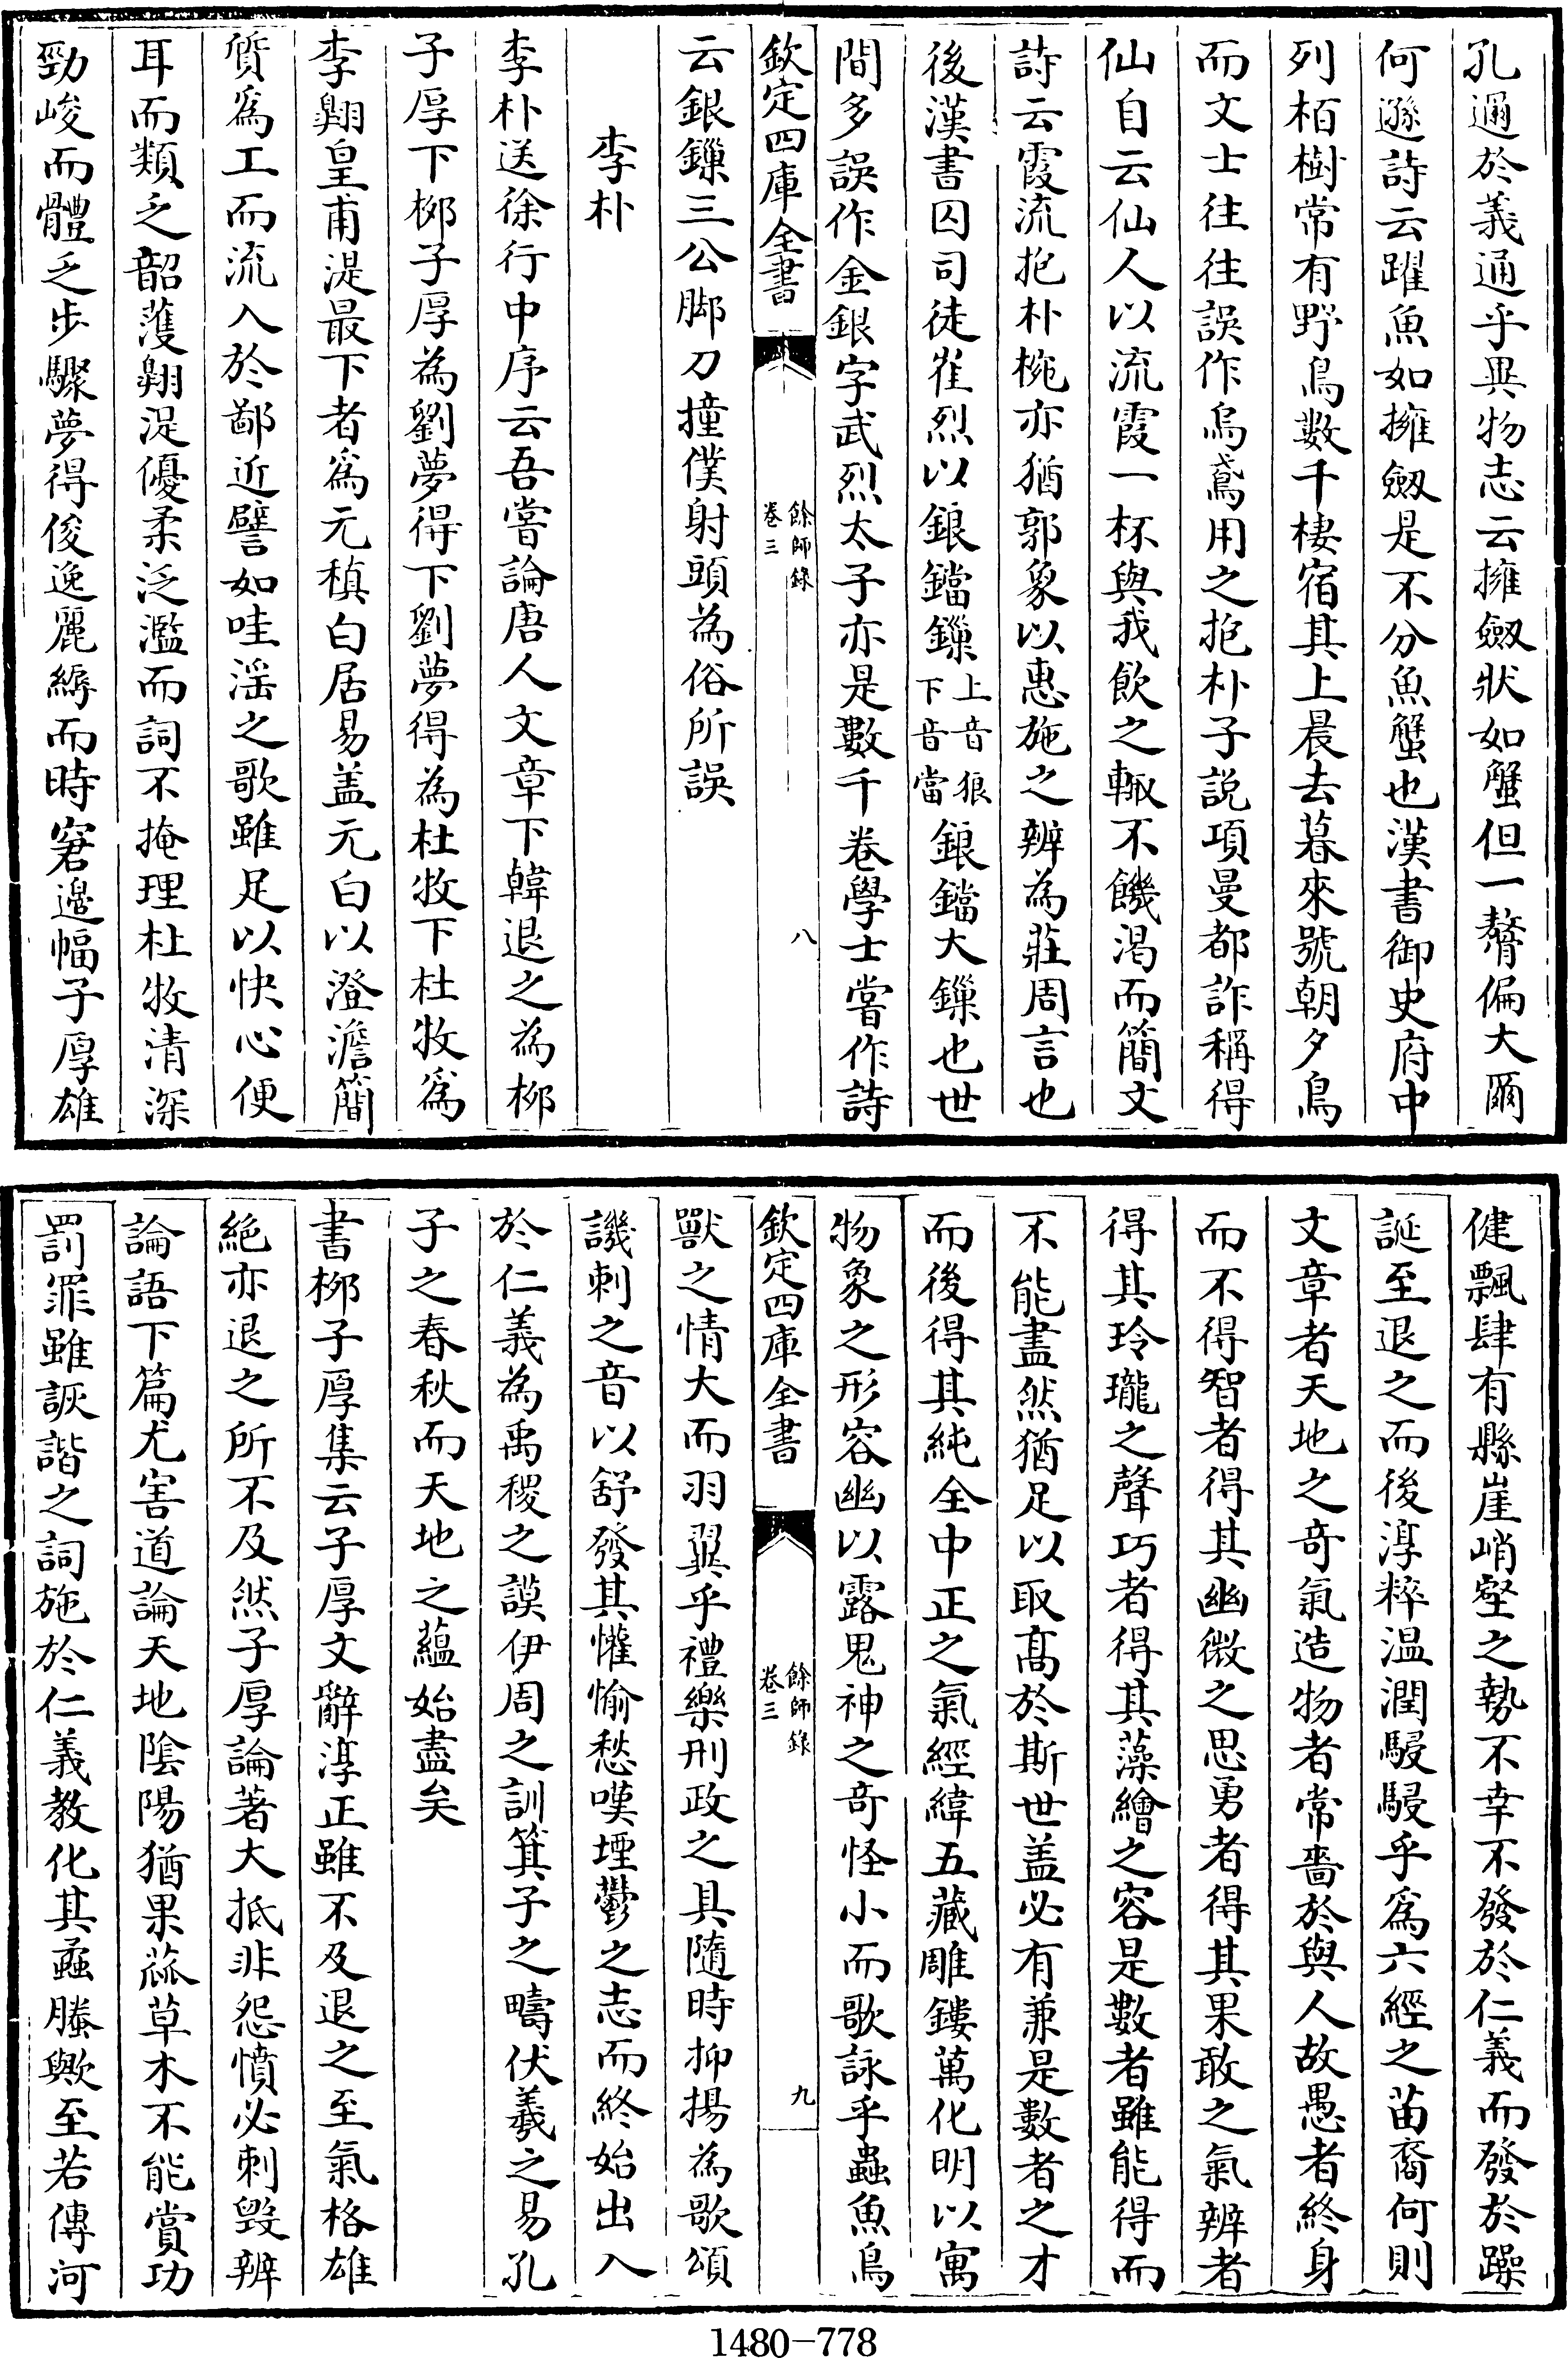 孔邇於義通乎異物志云擁劔狀如蟹但一螯偏大爾
何遜詩云躍魚如擁劔是不分魚蟹也漢書御史府中
列栢樹常有野鳥數千棲宿其上晨去暮來號朝夕鳥
而文士往往誤作烏鳶用之抱朴子説項曼都詐稱得
仙自云仙人以流霞一杯與我飲之輙不饑渴而簡文
詩云霞流抱朴椀亦猶郭象以惠施之辨為莊周言也
後漢書囚司徒崔烈以鋃鐺鏁上音狼下音當鋃鐺大鏁也世
間多誤作金銀字武烈太子亦是數千卷學士嘗作詩
欽定四庫全書
餘師錄
卷三
八
云銀鏁三公脚刀撞僕射頭為俗所誤
李朴
李朴送徐行中序云吾嘗論唐人文章下韓退之為柳
子厚下柳子厚為劉夢得下劉夢得為杜牧下杜牧爲
李翺皇甫湜最下者爲元稹白居易盖元白以澄澹簡
質爲工而流入於鄙近譬如哇淫之歌雖足以快心便
耳而類乏韶頀翺湜優柔泛濫而詞不掩理杜牧清深
勁峻而體乏步驟夢得俊逸麗縟而時窘邊幅子厚雄
健飄肆有縣崖峭壑之勢不幸不發於仁義而發於躁
誕至退之而後淳粹温潤駸駸乎爲六經之苗裔何則
文章者天地之竒氣造物者常嗇於與人故愚者終身
而不得智者得其幽微之思勇者得其果敢之氣辨者
得其玲瓏之聲巧者得其藻繪之容是數者雖能得而
不能盡然猶足以取髙於斯世盖必有兼是數者之才
而後得其純全中正之氣經緯五藏雕鏤萬化明以寓
物象之形容幽以露鬼神之竒怪小而歌詠乎蟲魚鳥
欽定四庫全書
餘師錄
卷三
九
獸之情大而羽翼乎禮樂刑政之具隨時抑揚為歌頌
譏刺之音以舒發其懽愉愁嘆堙鬱之志而終始出入
於仁義為禹稷之謨伊周之訓箕子之疇伏羲之易孔
子之春秋而天地之蘊始盡矣
書柳子厚集云子厚文辭淳正雖不及退之至氣格雄
絶亦退之所不及然子厚論著大抵非怨憤必刺毁辨
論語下篇尤害道論天地陰陽猶果蓏草木不能賞功
罰罪雖詼諧之詞施於仁義教化其蟊螣歟至若傳河
1480-778